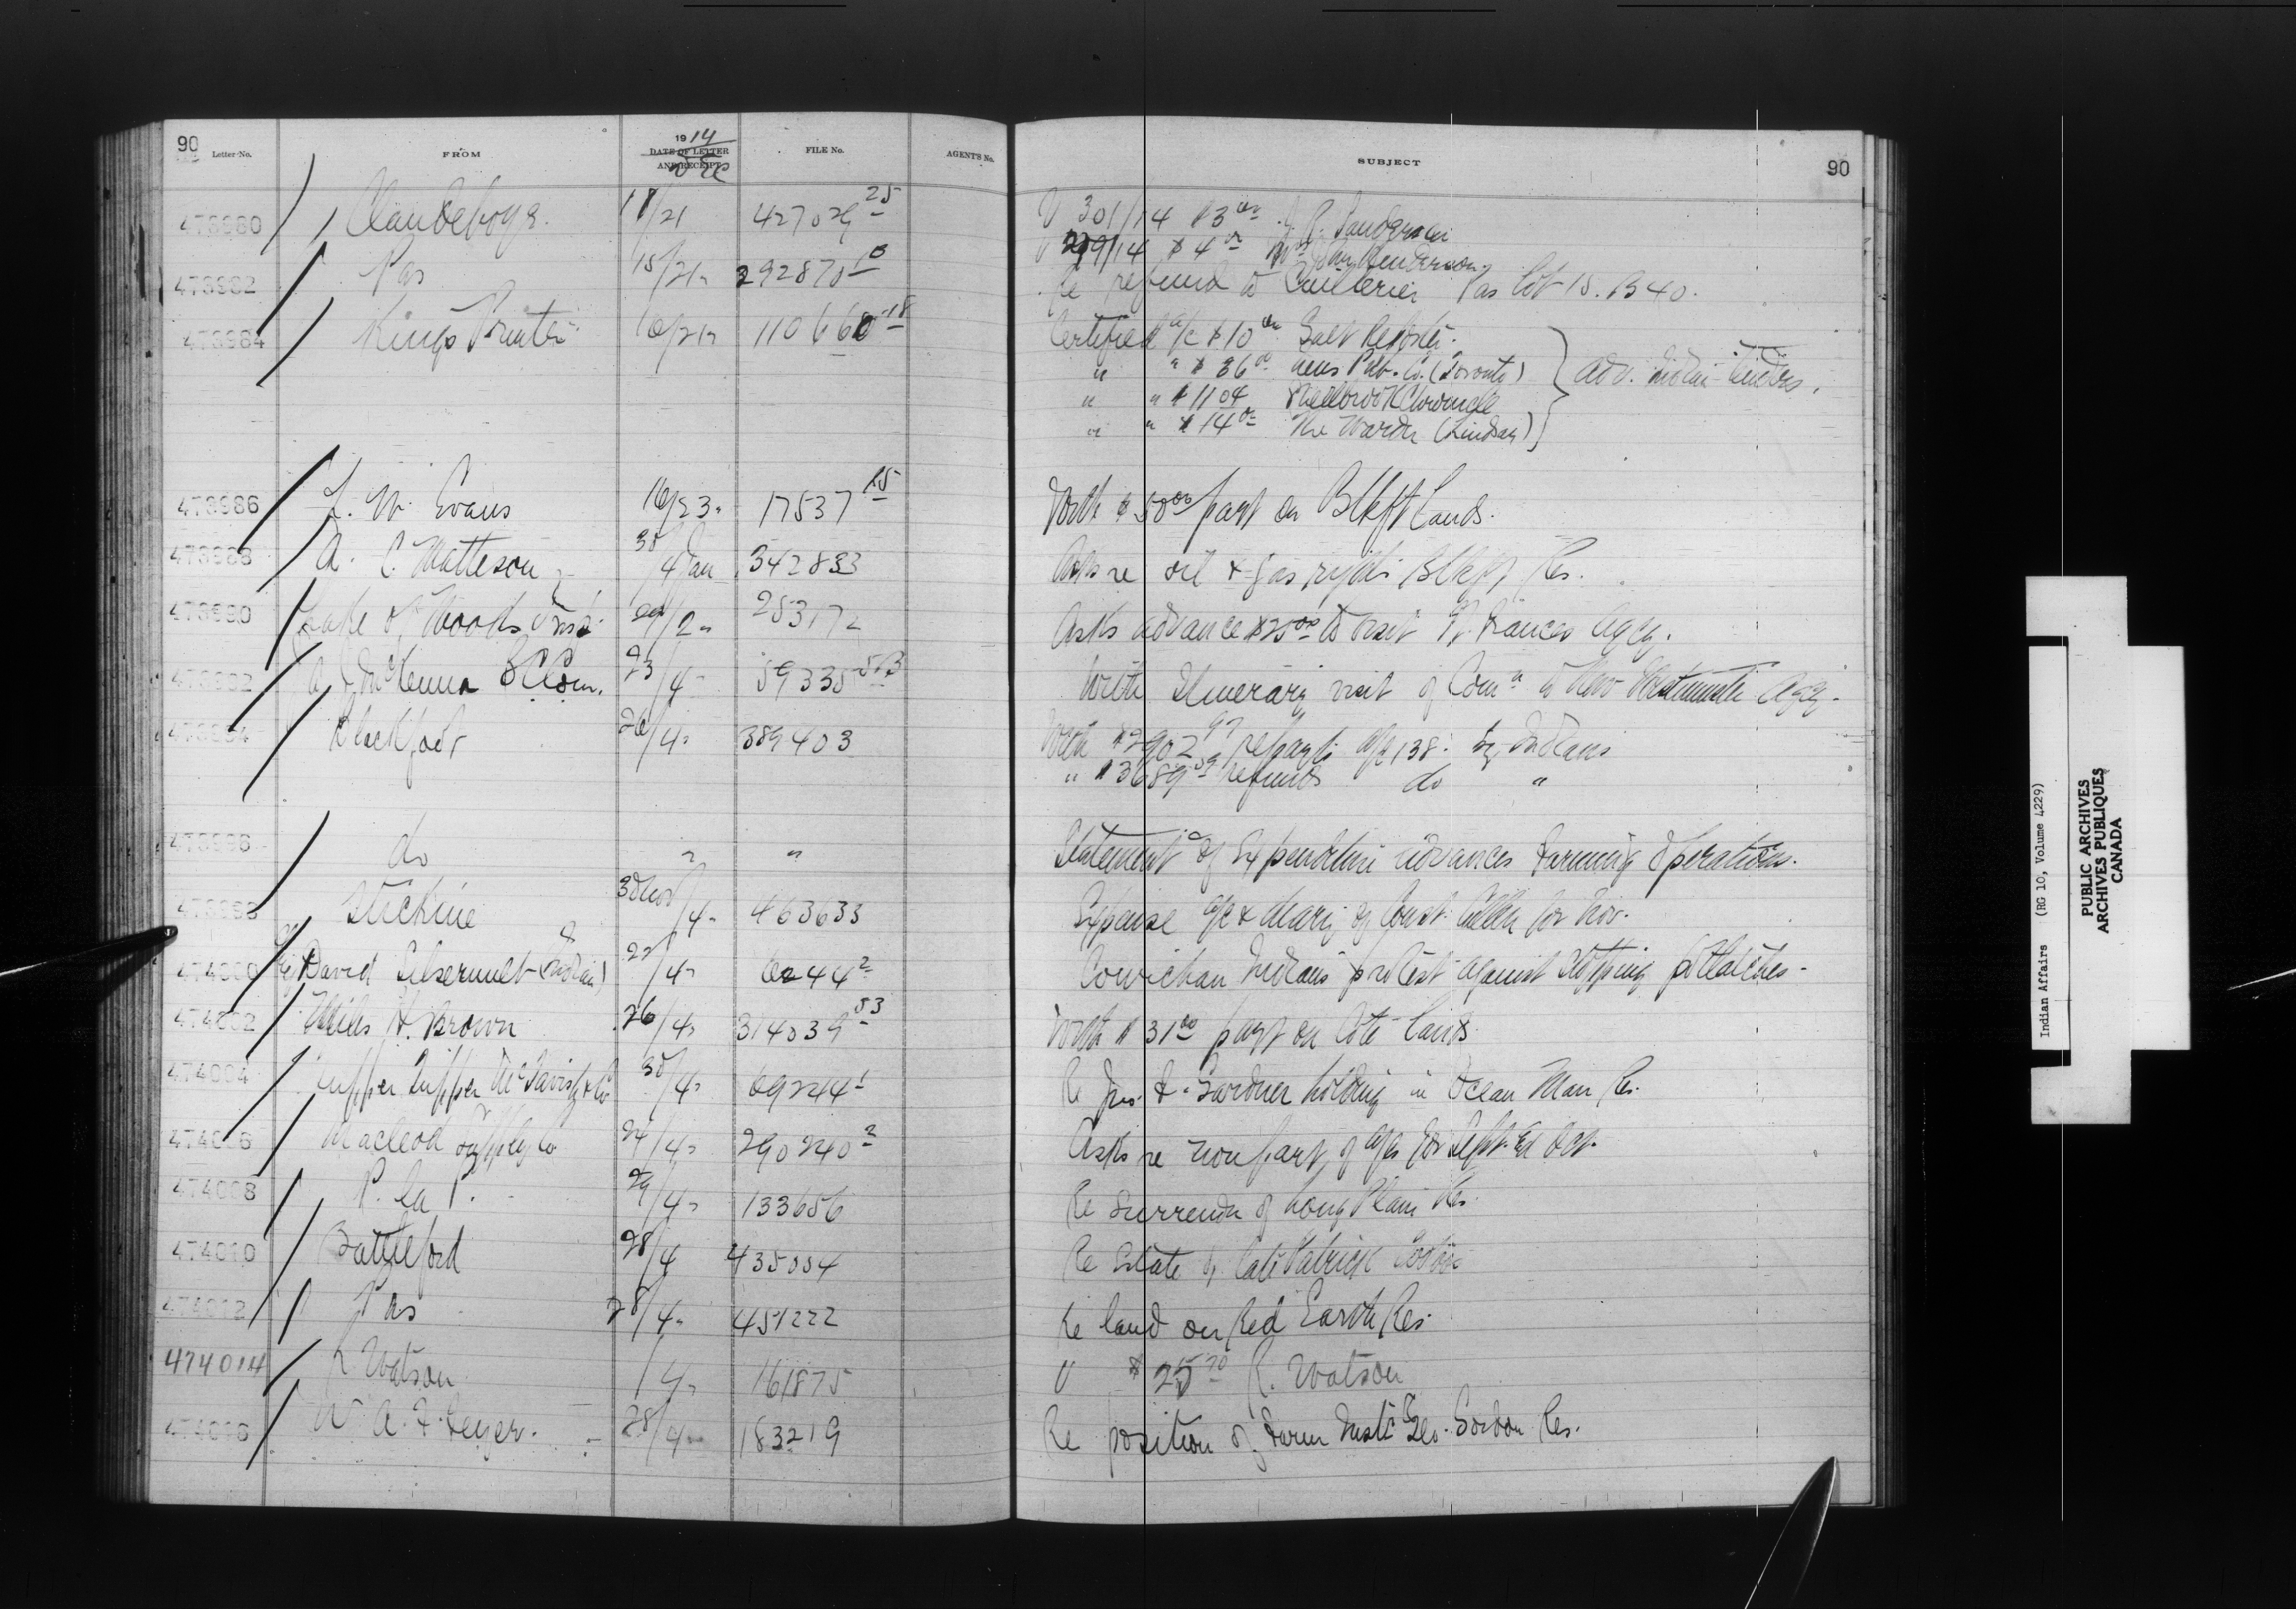 90
Letter No.
FROM
1914
DATE OF LETTER
AND RECEIPT
Dec
FILE No.
AGENT'S No.
SUBJECT
90
473980 Clandeboye 18/21 427029-25 V 301/14 $3 00 J. R.
V 299/14 $4 00 Henderson
473982 Pas 15/21 " 292870-10 Re refund to Pas lot 15. B 40.
473984 Kings Printer 16/21 " 110660-18 Certified a/c $10 00 Galt Reporter
" " $36 00 News Pub. Co. (Toronto) adv. Indian
" " $11 04 Shellbrook Chronicle
" " $14 00 The Warder (Lindsay)
473986 L. W. Evans 16/23 " 17537-15 With $50 00 payt on Blkft Lands.
473988 A. C. Matteson 30/4 Jan 342833 Asks re oil & gas rights Blkft Res.
473990 Lake of Woods Insp. 29/2 " 253172 Asks advance $25 00 to visit Ft. Frances Agcy.
473992 A. J. McKenna B C Com. 23/4 " 59335-5B With Itinerary visit of Comn to New Westminster Agcy.
473994 Blackfoot 26/4 " 389403 With $2902 97 repayts a/c 138. by Indians
" $3689 59 refunds do "
473996 do " " Statement of Expenditure advances Farming Operations.
473998 Stickine 30 Nov/4 " 463633 Expense a/c & diary of Const. for Nov.
474000 David (Indian) 22/4 " 6244-2 Cowichan Indians protest against stopping potlatches.
474002 Miles H. Brown 26/4 " 314039-53 With $31 00 payt on Cote lands
474004 Tupper Tupper McTavish & Co 30/4 " 69244-1 Re Jno. F. Gardner holding in Ocean Man Res.
474006 Macleod Supply Co 24/4 " 290240-2 Asks re non payt. of a/cs for Sept. & Oct.
474008 P. la P. 29/4 " 133656 Re Surrender of Long Plain Res.
474010 Battleford 28/4 435054 Re Estate of late Patrick
474012 Pas 28/4 " 451222 Re land on Red Earth Res.
474014 R Watson /4 " 161875 V $25 70 R. Watson
474016 W. A. F. Heyer. 28/4 " 183219 Re position of Farm Instr Geo. Gordon Res.
Indian Affairs (RG 10, Volume 4229)
PUBLIC ARCHIVES
ARCHIVES PUBLIQUES
CANADA